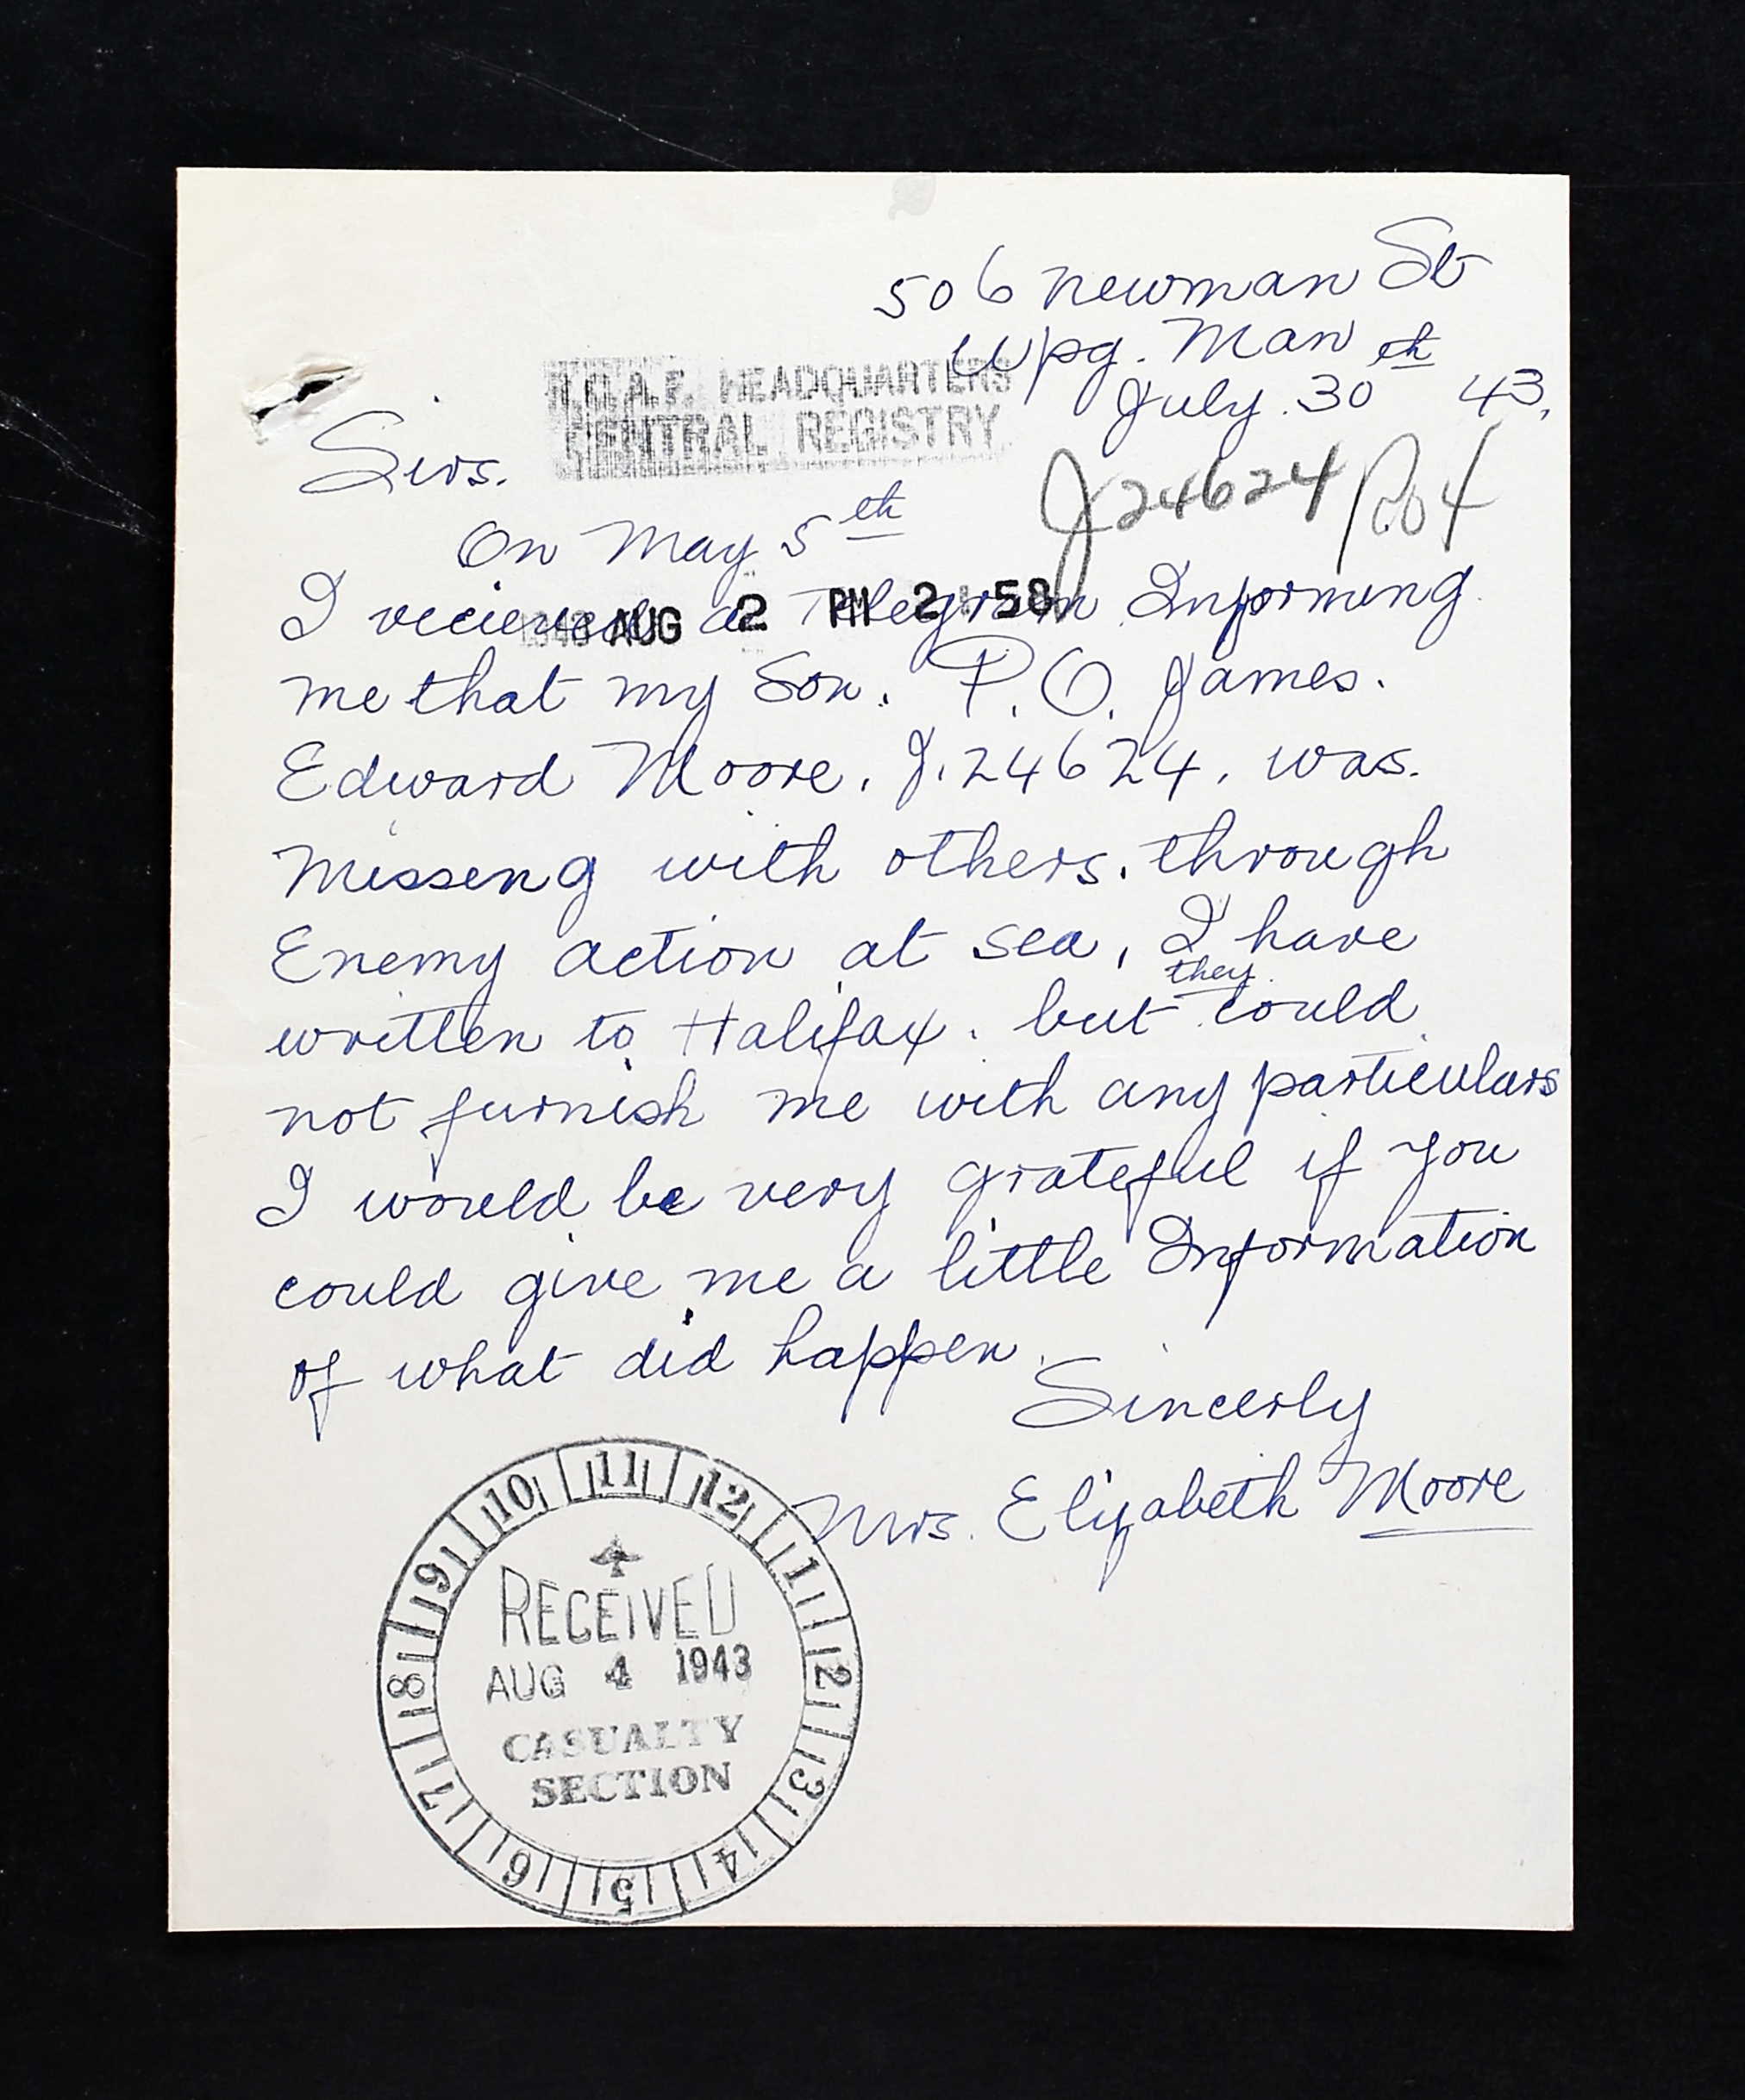 506 Newman St
Wpg. Man
July. 30th 43,
R.C.A.F. HEADQUARTERS
CENTRAL REGISTRY
Sirs.
J24624
On May 5th
I recieved a Telegram Informing
1943 AUG 2 PM 2 58
me that my Son. P.O. James.
Edward Moore. J.24624. was.
Missing with others. through
Enemy action at sea, I have
they
written to Halifax. but could
not furnish me with any particulars
I would be very grateful if you
could give me a little Information
of what did happen.
Sincerly
Mrs. Elizabeth Moore
10 11 12 1 2 3 4 5 6 7 8 9
RECEIVED
AUG 4 1943
CASUALTY
SECTION